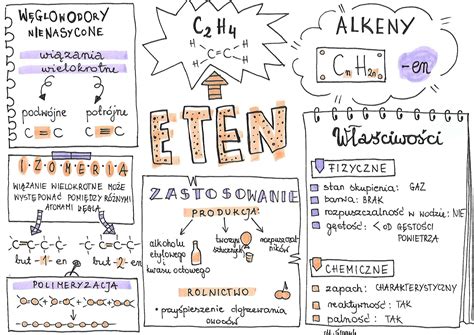 WĘGLOWODORY
NIENASYCONE
wiązania
wielokrotne
podwójne potrójne
C=C C≡C
IZOMERIA
WIĄZANIE WIELOKROTNE MOŻE
WYSTĘPOWAĆ POMIĘDZY RÓŻNYMI
ATOMAMI WĘGLA
-C=C-C-C- -C-C=C-C-
but-1-en but-2-en
POLIMERYZACJA
C2H4
C=C
ETEN
ZASTOSOWANIE
PRODUKCJA:
alkoholu
etylowego
i kwasu octowego
tworzyw
sztucznych
rozpuszczal-
ników
ROLNICTWO
przyśpieszenie dojrzewania
owoców
ALKENY
CnH2n -en
Właściwości
FIZYCZNE
stan skupienia: GAZ
barwa: BRAK
rozpuszczalność w wodzie: NIE
gęstość: < OD GĘSTOŚCI
POWIETRZA
CHEMICZNE
zapach: CHARAKTERYSTYCZNY
reaktywność: TAK
palność: TAK